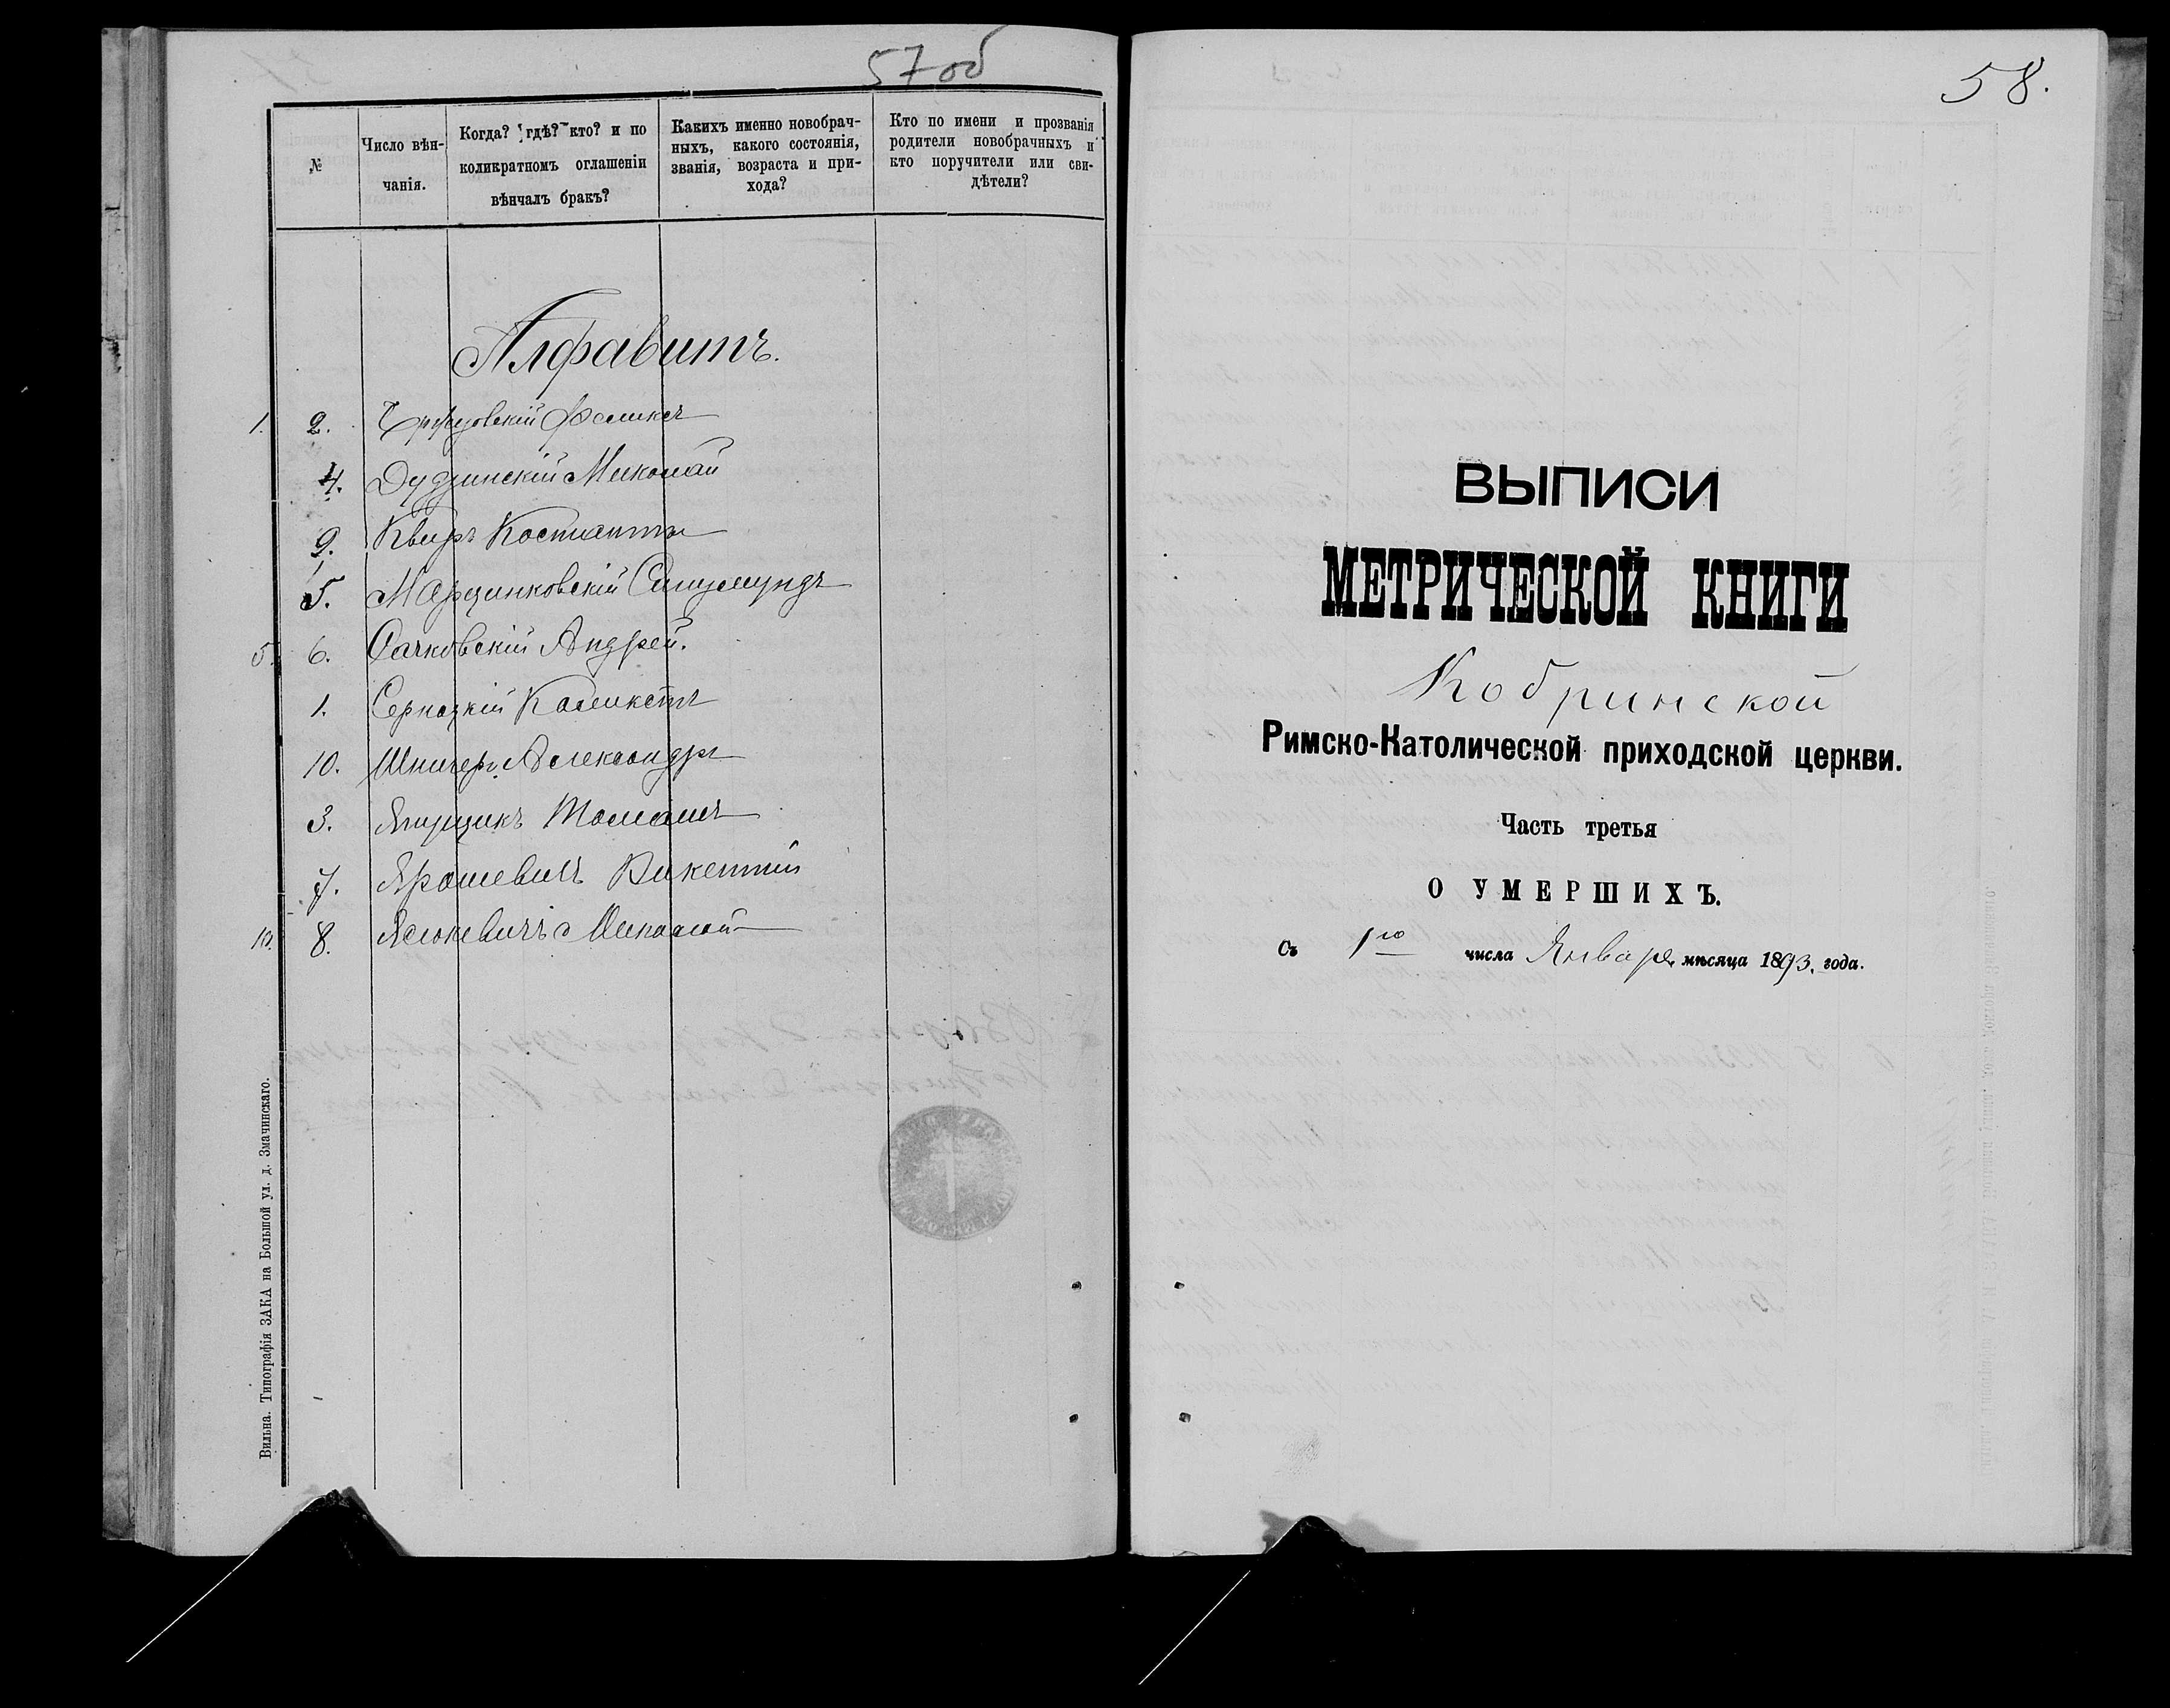 57 об
№
Число вѣн-
чанія.
Когда? гдѣ? кто? и по
коликратномъ оглашеніи
вѣнчалъ бракъ?
Какихъ именно новобрач-
ныхъ, какого состоянія,
званія, возраста и при-
хода?
Кто по имени и прозванія
родители новобрачныхъ и
кто поручители или сви-
дѣтели?
Алфавитъ.
1. 2. Феликсъ
4. Дудзинскій Миколай
9. Квиръ
5. Марцинковскій Сигизмундъ
5. 6. Сачковскій Андрей.
1. Каликстъ
10. Александръ
3. Ямщикъ Томашъ
7. Ярошевичъ Викентій
10. 8. Яслюкевичъ Миколай
Вильна. Типографія ЗАКА на Большой ул. д. Змачинскаго.
58.
ВЫПИСИ
МЕТРИЧЕСКОЙ КНИГИ
Кобринской
Римско-Католической приходской церкви.
Часть третья
О УМЕРШИХЪ.
Съ 1го числа Января мѣсяца 1893. года.